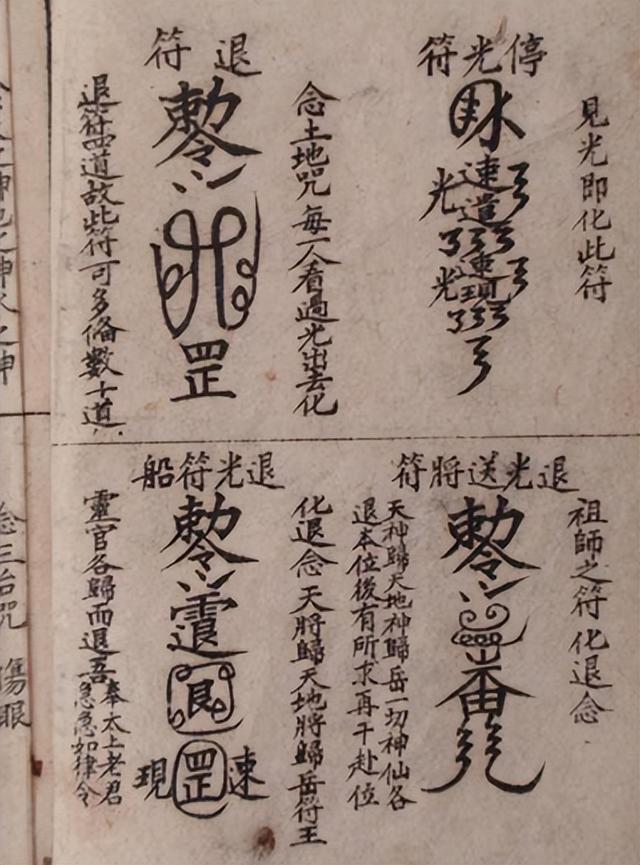 見光即化此符
停光符
速遣
光
速現
光
念土地咒每一人看過光出去化
退符
敕令
罡
退符四道故此符可多俻數十道
祖師之符化退念
退光送將符
敕令
天神歸天地神歸岳一切神仙各
退本位後有所求再干赴位
化退念天將歸天地將歸岳符王
退光符船
敕令
速罡現
靈官各歸而退吾奉太上老君
急急如律令
傷眼